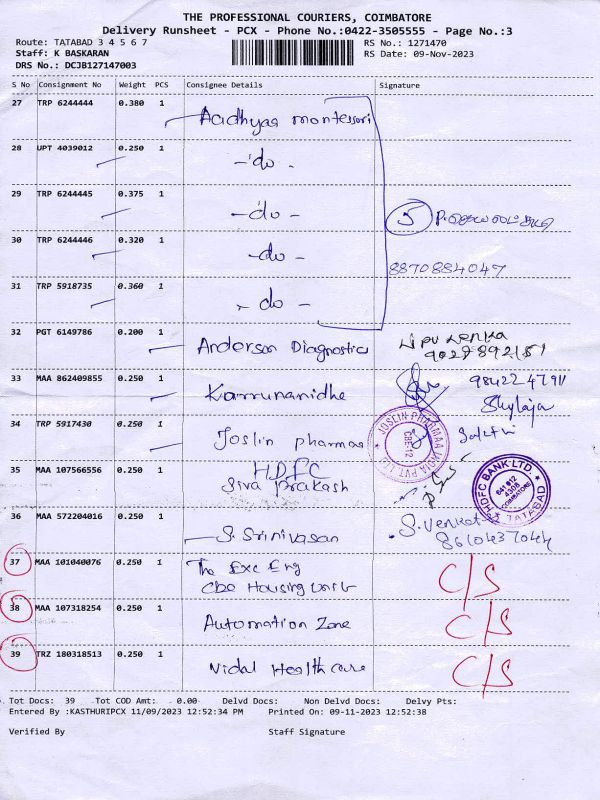 THE PROFESSIONAL COURIERS, COIMBATORE
Delivery Runsheet - PCX - Phone No.:0422-3505555 - Page No.:3
Route: TATABAD 3 4 5 6 7
Staff: K BASKARAN
DRS No.: DCJB127147003
RS No.: 1271470
RS Date: 09-Nov-2023
S No Consignment No Weight PCS Consignee Details Signature
27 TRP 6244444 0.380 1 Aadhyas montessori
28 UPT 4039012 0.250 1 - do -
29 TRP 6244445 0.375 1 - do - 5
30 TRP 6244446 0.320 1 - do - 8870884047
31 TRP 5918735 0.360 1 - do -
32 PGT 6149786 0.200 1 Anderson Diagnostics
33 MAA 862409855 0.250 1 Karrunanidhe Shylaja
34 TRP 5917430 0.250 1 Joslin pharmaa Sakthi
JOSLIN PHARMAA INDIA PVT LTD
CBE-12
35 MAA 107566556 0.250 1 HDFC
Siva Prakash
HDFC BANK LTD.
641 012
COIMBATORE
TATABAD
36 MAA 572204016 0.250 1 S. Srinivasan S. Venkat
8610437044
37 MAA 101040076 0.250 1 The Exc Eng C/S
CBE Housing Unit
38 MAA 107318254 0.250 1 Automation Zone C/S
39 TRZ 180318513 0.250 1 Vidal Health care C/S
Tot Docs: 39 Tot COD Amt: 0.00 Delvd Docs: Non Delvd Docs: Delvy Pts:
Entered By :KASTHURIPCX 11/09/2023 12:52:34 PM Printed On: 09-11-2023 12:52:38
Verified By Staff Signature